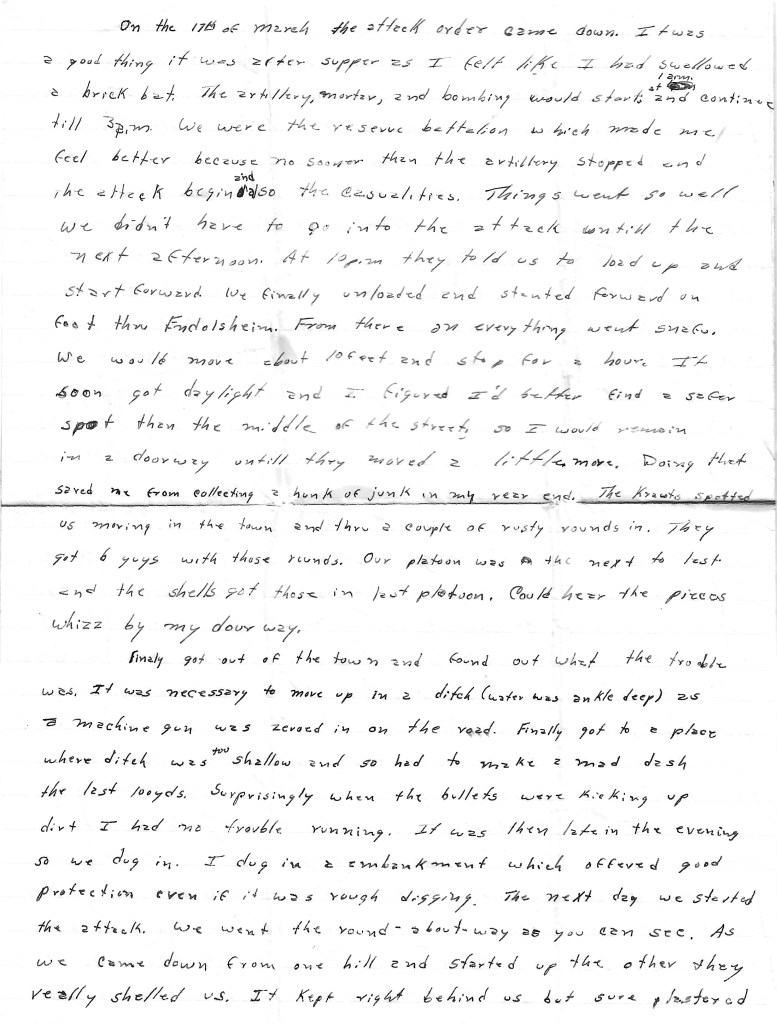 On the 17th of March the attack order came down. It was
a good thing it was after supper as I felt like I had swallowed
a brick bat. The artillery, mortar, and bombing would start at 1 a.m. and continue
till 3p.m. We were the reserve battalion which made me
feel better because no sooner than the artillery stopped and
the attack begin and also the casualities. Things went so well
we didn't have to go into the attack untill the
next afternoon. At 10p.m they told us to load up and
start forward. We finally unloaded and started forward on
foot thru Endolsheim. From there on everything went snafu.
We would move about 10 feet and stop for a hour. It
soon got daylight and I figured I'd better find a safer
spot than the middle of the street, so I would remain
in a doorway untill they moved a little more. Doing that
saved me from collecting a hunk of junk in my rear end. The Krauts spotted
us moving in the town and thru a couple of rusty rounds in. They
got 6 guys with those rounds. Our platoon was the next to last
and the shells got those in last platoon. Could hear the pieces
whizz by my door way.
Finaly got out of the town and found out what the trouble
was. It was necessary to move up in a ditch (water was ankle deep) as
a machine gun was zeroed in on the road. Finally got to a place
where ditch was too shallow and so had to make a mad dash
the last 100yds. Surprisingly when the bullets were kicking up
dirt I had no trouble running. It was then late in the evening
so we dug in. I dug in a embankment which offered good
protection even if it was rough digging. The next day we started
the attack. We went the round-about-way as you can see. As
we came down from one hill and started up the other they
really shelled us. It kept right behind us but sure plastered